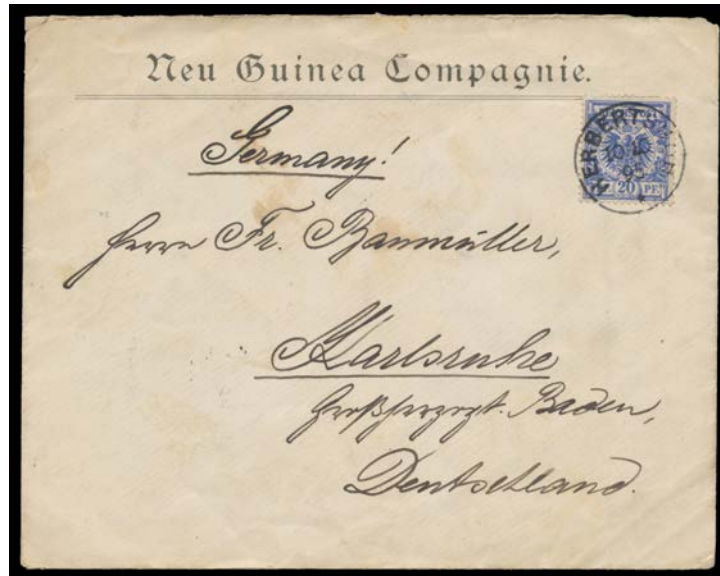 Neu Guinea Compagnie.
HERBERTSHÖHE
10 10
95
20 PF
Germany!
Herrn Fr. Baumüller,
Karlsruhe
Großherzogt. Baden,
Deutschland.